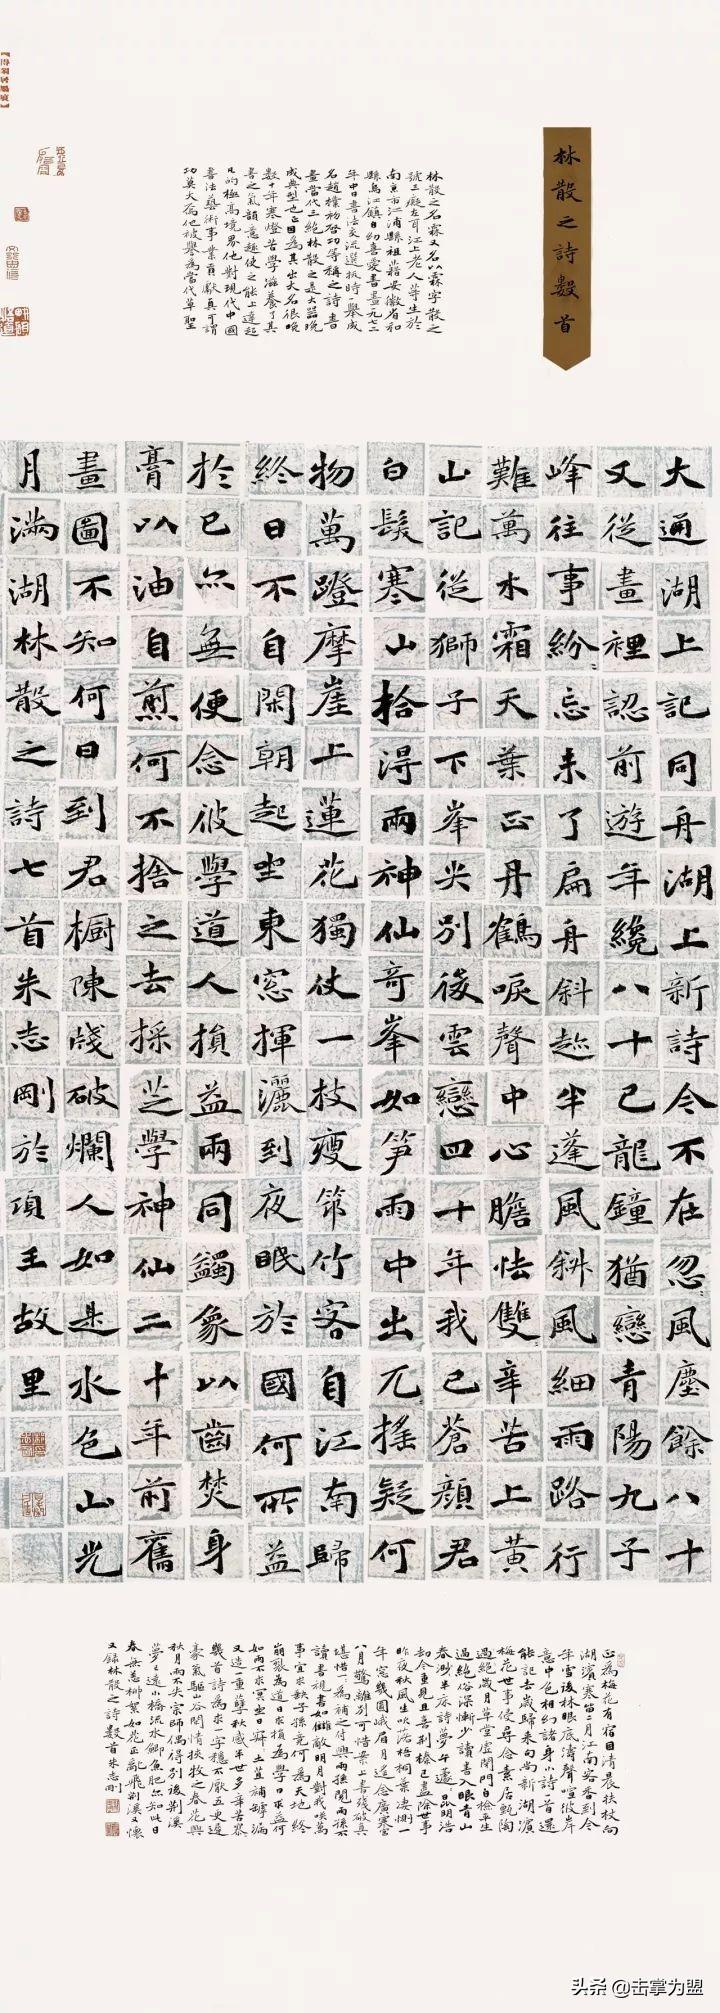 林散之詩數首
林散之名霖又名以霖字散之
號三癡左耳江上老人等生於
南京市江浦縣祖籍安徽省和
縣烏江鎮自幼喜愛書畫九七二
年中日書法交流選拔時一舉成
名趙樸初啓功等稱之詩書
畫當代三絕林散之是大器晚
成典型也正因為其出大名很晚
數十年寒燈苦學滋養了其
書之氣韻意趣使之能上達超
凡的極高境界他對現代中國
書法藝術事業貢獻真可謂
功莫大焉他被譽為當代草聖
大通湖上記同舟湖上新詩今不在忽風塵餘八十
又從畫裡認前遊年纔八十已龍鐘猶戀青陽九子
峰往事紛忘未了扁舟斜趂半蓬風斜風細雨路行
難萬水霜天葉正丹鶴唳聲中心膽怯雙辛苦上黃
山記從獅子下峯尖別後雲巒四十年我已蒼顏君
白髮寒山拾得兩神仙奇峯如笋雨中出兀搖疑何
物萬蹬摩崖上蓮花獨仗一枝瘦筇竹客自江南歸
終日不自閑朝起坐東窓揮灑到夜眠於國何所益
於已亦無便念彼學道人損益兩同蠲象以齒焚身
膏以油自煎何不捨之去採芝學神仙二十年前舊
畫圖不知何日到君櫥陳牋破爛人如是水色山光
月滿湖林散之詩七首朱志剛於項王故里
正為梅花有宿因清晨扶杖向
湖濱寒笛二月江南客香到今
年雪後林眼底濤聲喧彼岸
意中色相約諸身小詩首還
能記去歲歸來句尚新湖濱
梅花世事侵尋念素居甄陶
過絕歲月草堂虛閉門自檢平生
過絕俗深慚少讀書入眼青山
春渺半床詩夢午蘧昆明浩
劫今重見且喜荆榛已盡除世事
昨夜秋風生吹落梧桐葉淒惻一
年容幾圓峨眉月遙念廣寒宮
八月驚離別可惜案上書殘破真
堪惜一為補之付與兩孫閱兩孫不
讀書視書如讎敵明月對我嘆萬
事宜求缺子孫竟何為天地終
崩裂為道日求損為學日求益何
如兩不求冥坐日補罅漏
又造一重孽秋感半世多辛苦
幾首詩為求一字穩不厭五更遲
豪氣驅山谷閑情挾牧之春花與
秋月兩不失宗師偶得別後荆溪
夢遠小橋流水鯽魚肥亦知此日
春無恙柳絮如花正亂飛荆溪又懷
又錄林散之詩數首朱志剛
头条 @击掌为盟